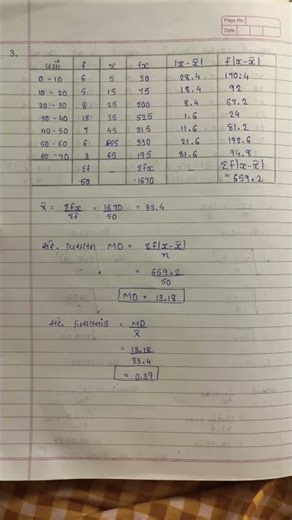 Page No.
Date
3.
વર્ગ f x fx |x-x̄| f|x-x̄|
0-10 6 5 30 28.4 170.4
10-20 5 15 75 18.4 92
20-30 8 25 200 8.4 67.2
30-40 15 35 525 1.6 24
40-50 7 45 315 11.6 81.2
50-60 6 55 330 21.6 129.6
60-70 3 65 195 31.6 94.8
Σf - Σfx Σf|x-x̄|
50 =1670 = 659.2
x̄ = Σfx/Σf = 1670/50 = 33.4
સરે. વિચલન MD = Σf|x-x̄|/n
= 659.2/50
MD = 13.18
સરે. વિચલનાંક = MD/x̄
= 13.18/33.4
= 0.39